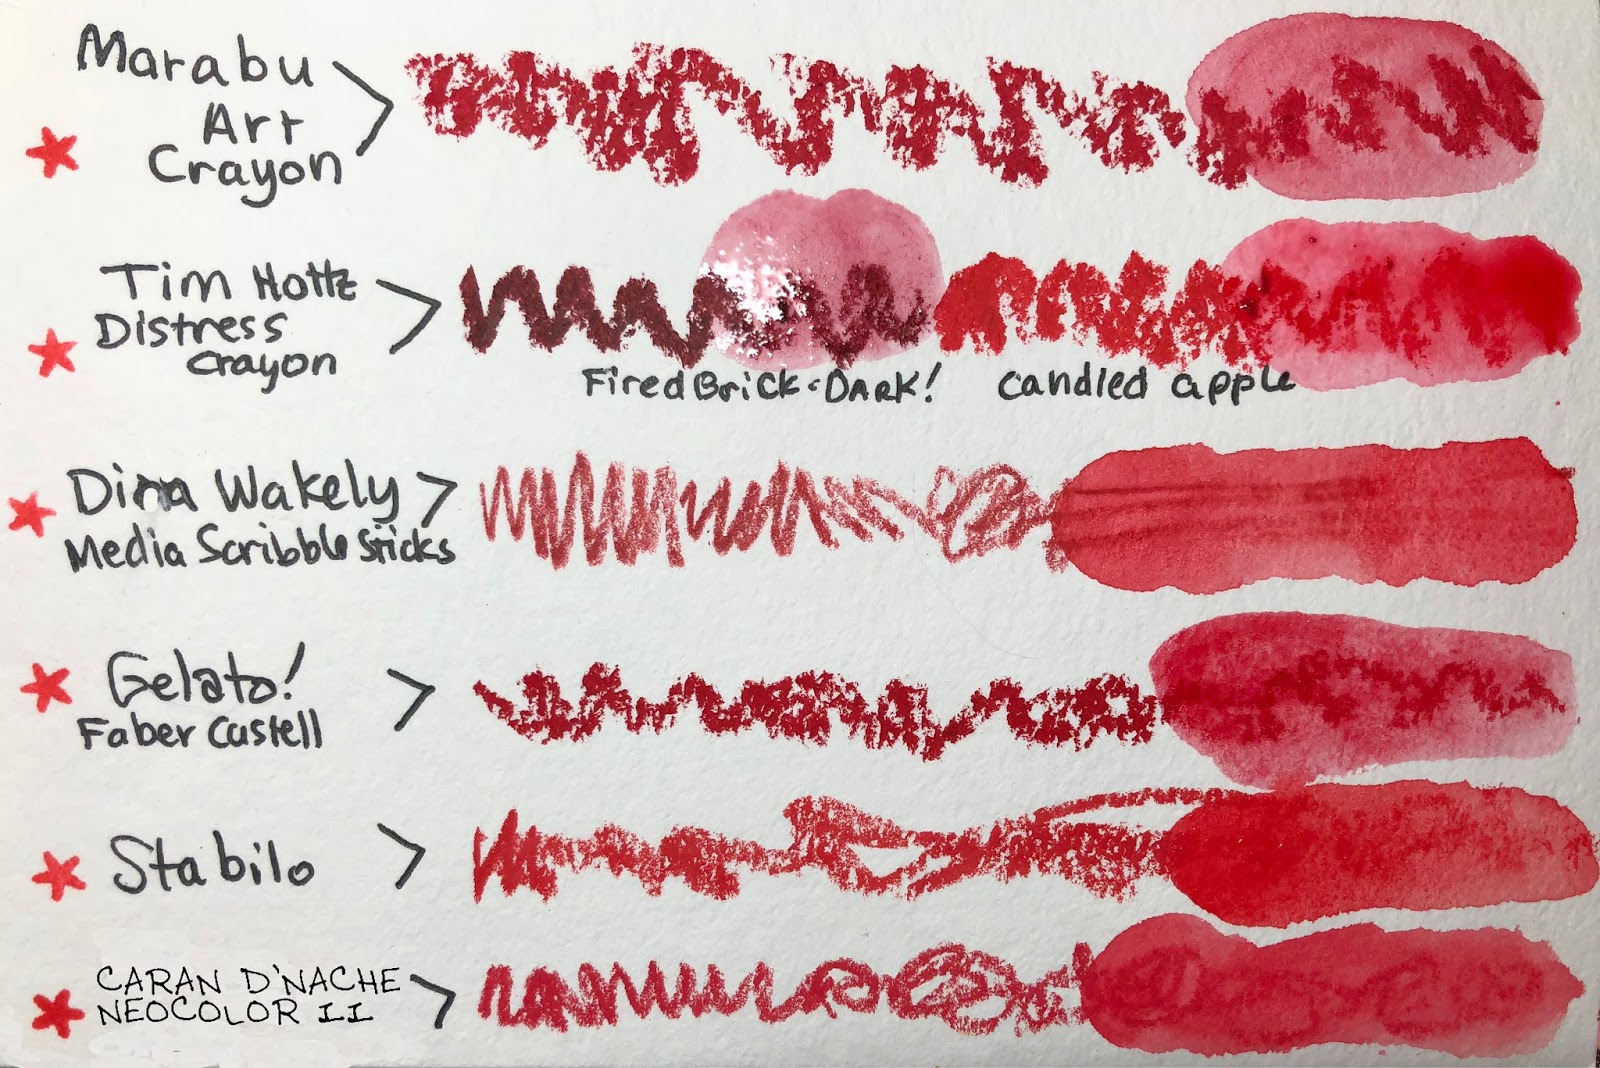 Marabu
Art
Crayon
Tim Holtz
Distress
crayon
Fired Brick - DARK!
candied apple
Dina Wakely
Media Scribble Sticks
Gelato!
Faber Castell
Stabilo
CARAN D'NACHE
NEOCOLOR II